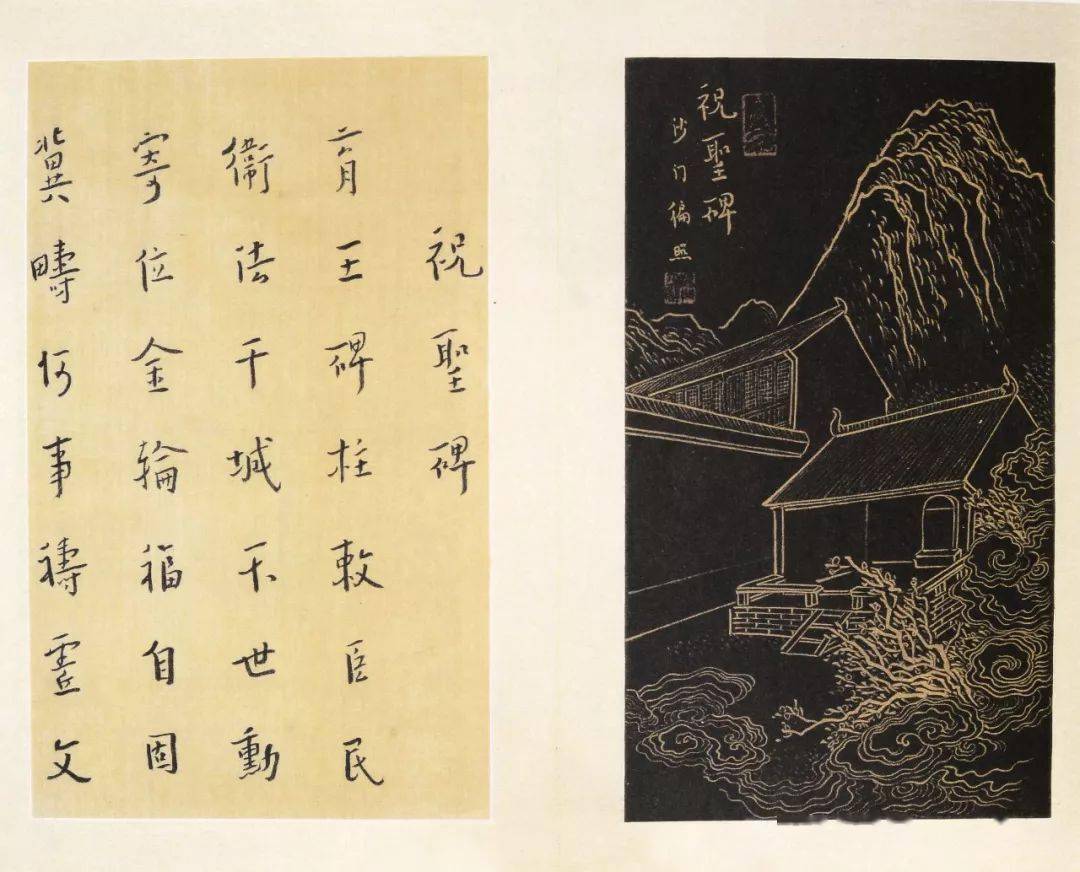 祝聖碑
沙门徧照
祝聖碑
育王碑柱敕臣民
衞法干城不世勳
寄位金輪福自固
冀疇何事禱靈文